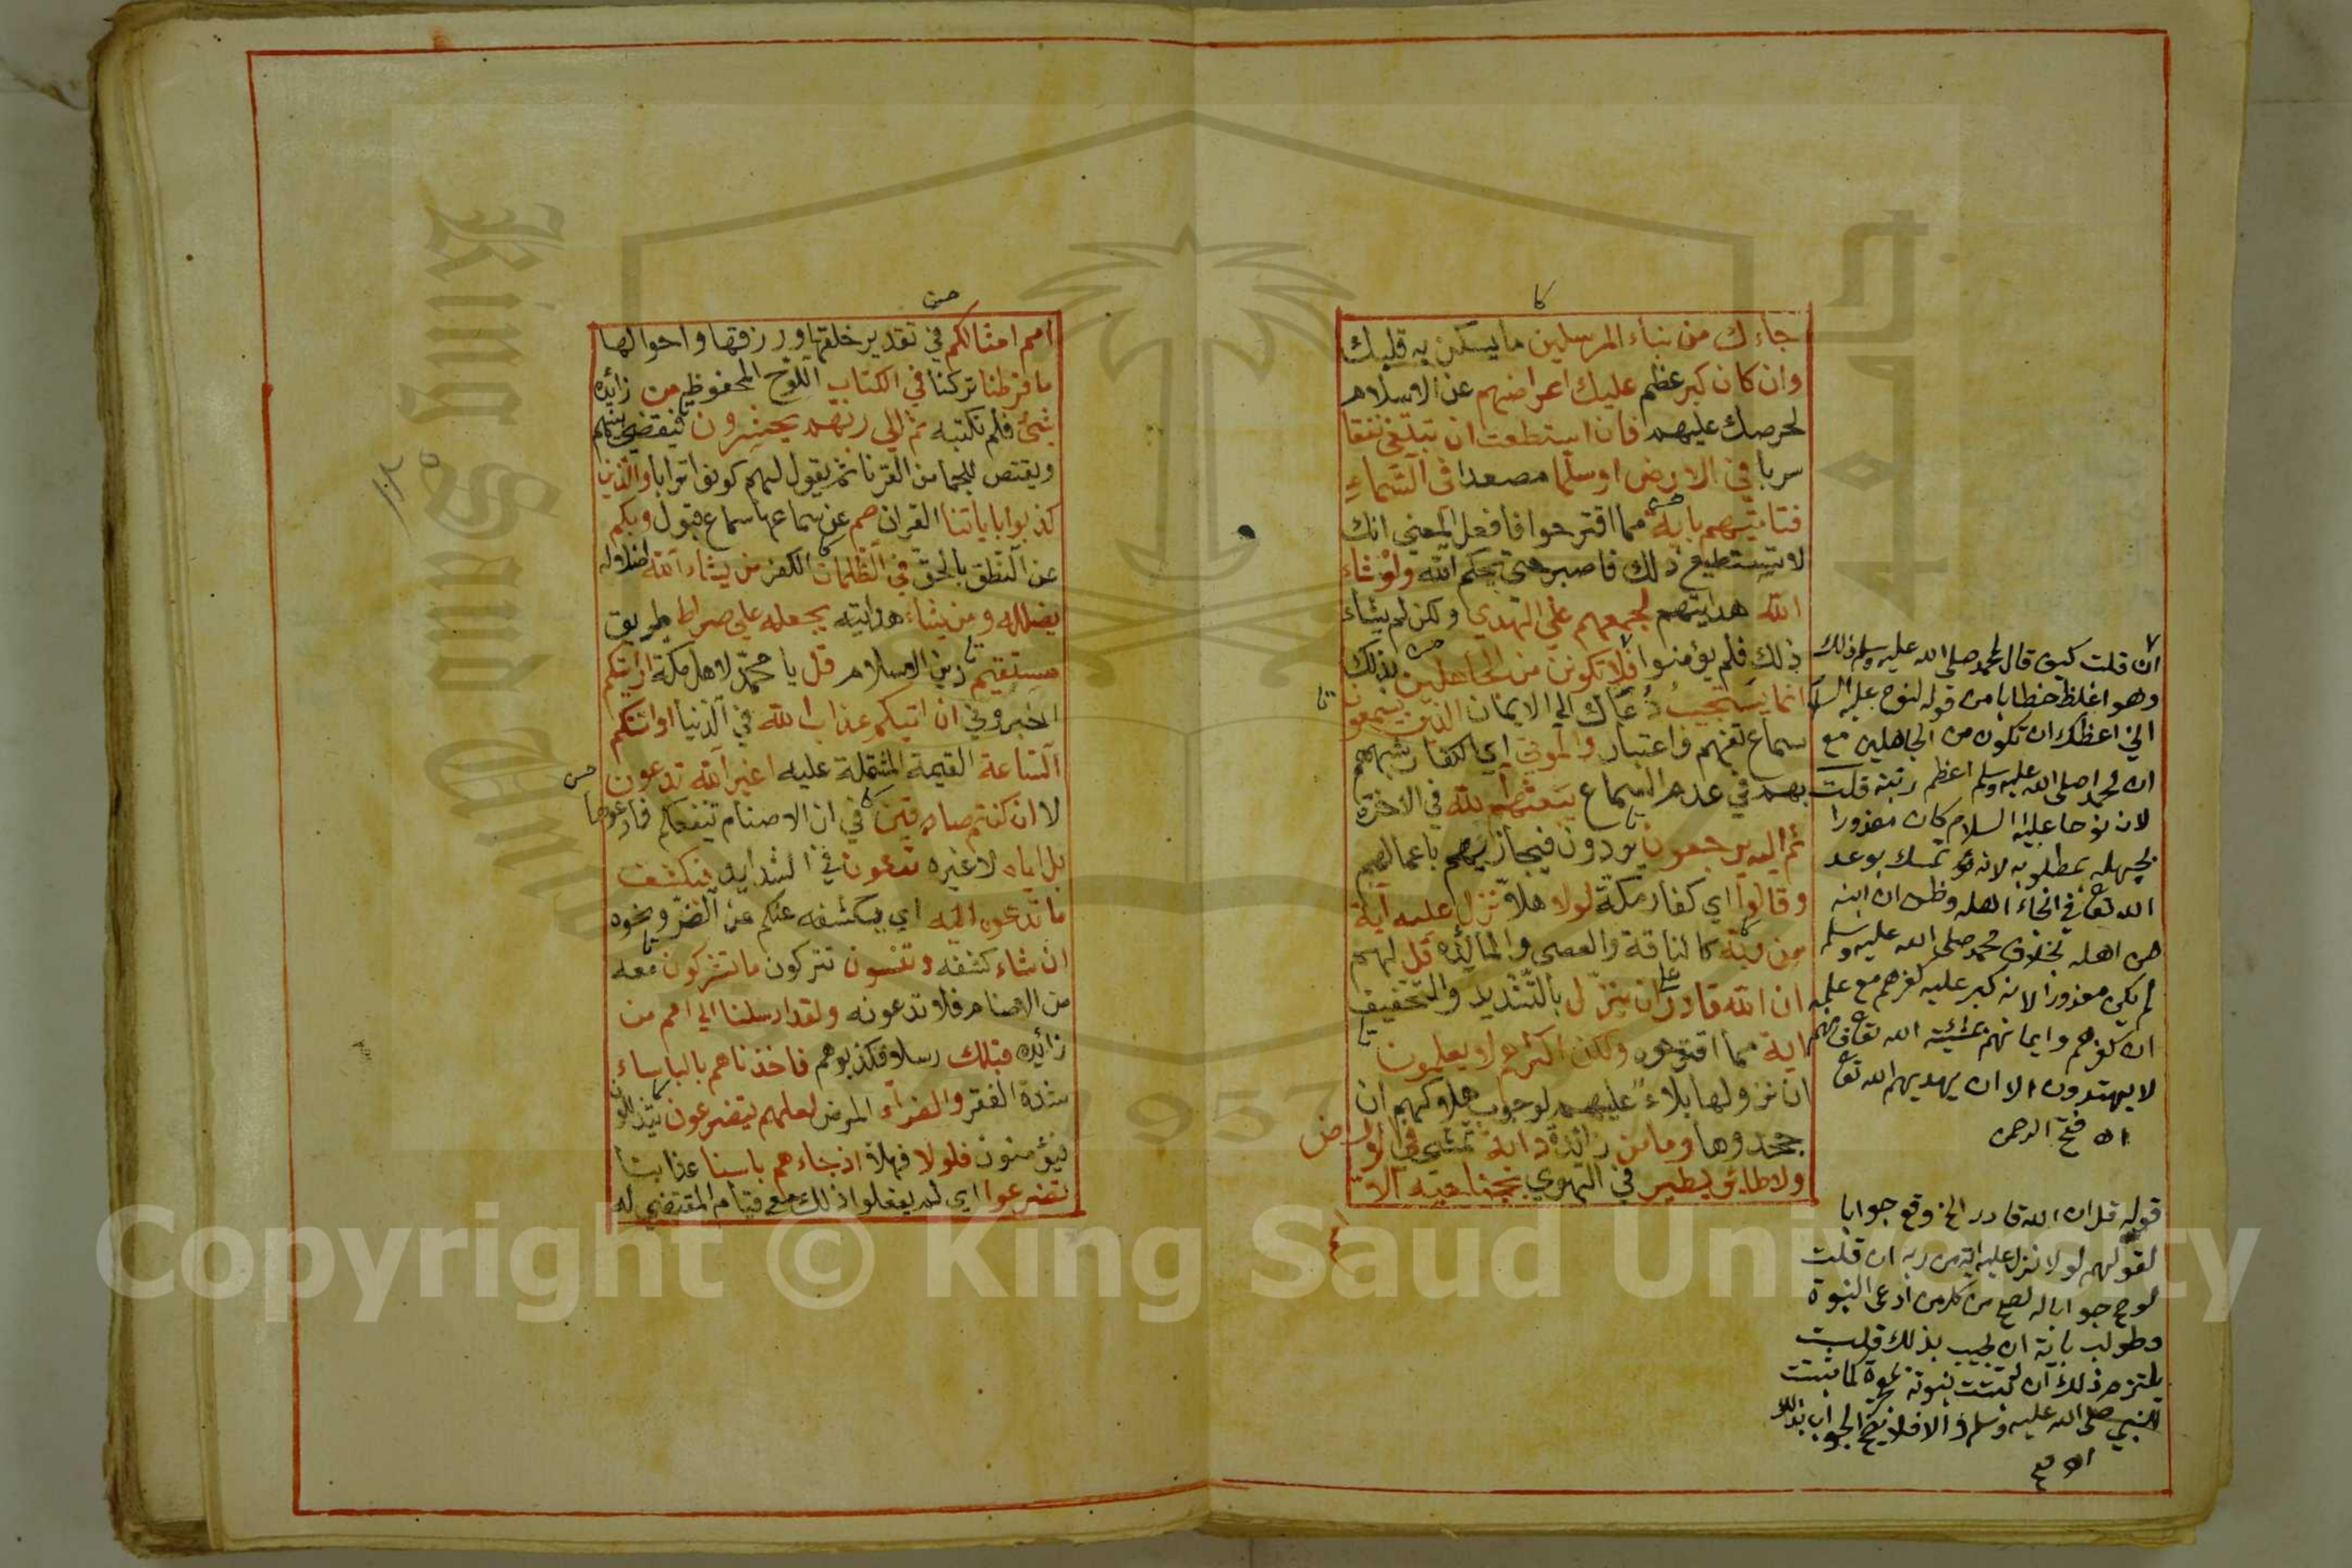 جاءك من نبأ المرسلين ما يسكن به قلبك
وان كان كبر عظم عليك اعراضهم عن الاسلام
لحرصك عليهم فان استطعت ان تبتغي نفقا
سربا في الارض او سلما مصعدا في السماء
فتأتيهم بآية مما اقترحوا فافعل المعنى انك
لا تستطيع ذلك فاصبر حتى يحكم الله ولو شاء
الله هدايتهم لجمعهم على الهدي ولكن لم يشاء
ذلك فلم يؤمنوا فلا تكونن من الجاهلين بذلك
انما يستجيب دعاك الي الايمان الذين يسمعون
سماع تفهم واعتبار والموتى اي الكفار شبههم
بهم في عدم السماع يبعثهم الله في الاخرة
ثم اليه يرجعون يردون فيجازيهم باعمالهم
وقالوا اي كفار مكة لولا هلا نزل عليه آية
من ربه كالناقة والعصى والمائدة قل لهم
ان الله قادر على ان ينزل بالتشديد والتخفيف
اية مما اقترحوه ولكن اكثرهم لا يعلمون
ان نزولها بلاء عليهم لوجوب هلاكهم ان
جحدوها وما من زائدة دابة تمشي في الارض
ولا طائر يطير في الهوي بجناحيه الا
ان قلت كيف قال لمحمد صلى الله عليه وسلم ذلك
وهو اغلظ خطابا من قوله لنوح عليه السلام
اني اعظك ان تكون من الجاهلين مع
ان محمدا صلى الله عليه وسلم اعظم رتبة قلت
لان نوحا عليه السلام كان معذورا
بجهله بمطلوبه لانه تمسك بوعد
الله تعالى في انجاء اهله وظن ان ابنه
من اهله بخلاف محمد صلى الله عليه وسلم
لم يكن معذورا لانه كبر عليه كفرهم مع علمه
ان كفرهم وايمانهم بمشيئة الله تعالى وانهم
لا يهتدون الا ان يهديهم الله تعالى
اه فتح الرحمن
قوله قل ان الله قادر الخ وقع جوابا
لقولهم لولا نزل عليه اية من ربه ان قلت
لو صح جوابا له لصح من كل من ادعى النبوة
وطولب باية ان يجيب بذلك قلت
يلتزم ذلك ان ثبتت نبوته بمعجزة كما ثبتت
للنبي صلى الله عليه وسلم والا فلا يصح الجواب بذلك
اه فتح
امم امثالكم في تقدير خلقها ورزقها واحوالها
ما فرطنا تركنا في الكتاب اللوح المحفوظ من زائده
شئ فلم نكتبه ثم الي ربهم يحشرون فيقضى بينهم
ويقتص للجما من القرنا ثم يقول لهم كونوا ترابا والذين
كذبوا باياتنا القران صم عن سماعها سماع قبول وبكم
عن النطق بالحق في الظلمات الكفر من يشاء الله اضلاله
يضلله ومن يشاء هدايته يجعله علي صراط طريق
مستقيم دين الاسلام قل يا محمد لاهل مكة ارأيتكم
اخبروني ان اتيكم عذاب الله في الدنيا او اتتكم
الساعة القيمة المشتملة عليه اغير الله تدعون
لا ان كنتم صادقين في ان الاصنام تنفعكم فادعوها
بل اياه لا غيره تدعون في الشدايد فيكشف
ما تدعون اليه اي يكشفه عنكم من الضر ونحوه
ان شاء كشفه وتنسون تتركون ما تشركون معه
من الاصنام فلا تدعونه ولقد ارسلنا الي امم من
زائده قبلك رسلا فكذبوهم فاخذناهم بالباساء
شدة الفقر والضراء المرض لعلهم يتضرعون يتذللون
فيؤمنون فلولا فهلا اذ جاءهم باسنا عذابنا
تضرعوا اي لم يفعلوا ذلك مع قيام المقتضي له
Copyright © King Saud University
1957